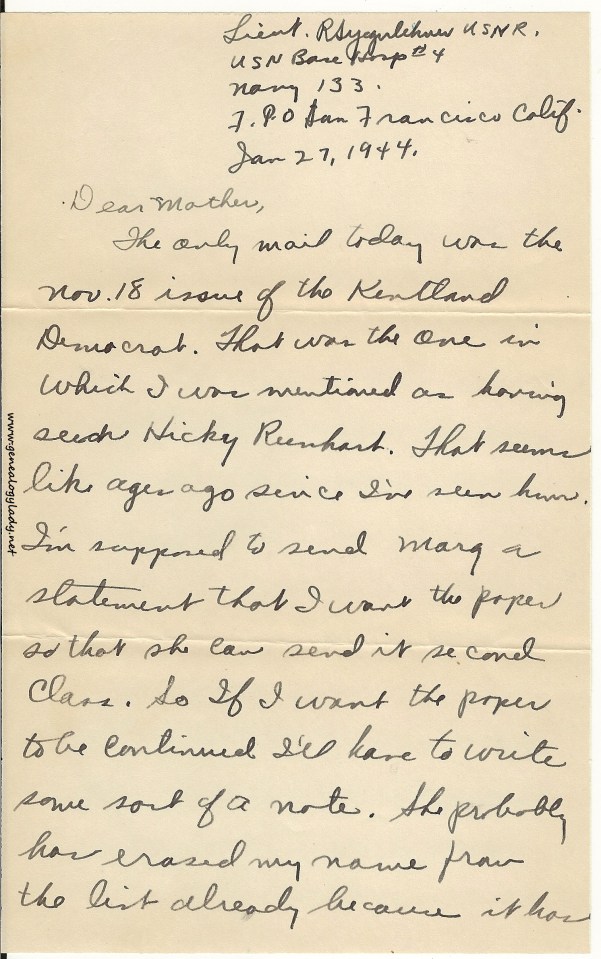 Lieut. R Yegerlehner USNR.
USN Base Hosp #4
Navy 133.
F.P.O San Francisco Calif.
Jan 27, 1944.
Dear Mother,
The only mail today was the
Nov. 18 issue of the Kentland
Democrat. That was the one in
which I was mentioned as having
seen Nicky Reinhart. That seems
like ages ago since I've seen him.
I'm supposed to send Marg a
statement that I want the paper
so that she can send it second
class. So If I want the paper
to be continued I'll have to write
some sort of a note. She probably
has erased my name from
the list already because it has
www.genealogylady.net